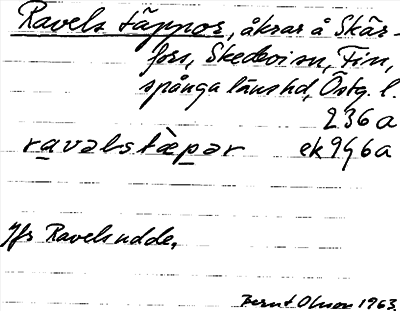 Ravels täppor, åkrar å Skär-
fors, Skedevi sn, Fin-
spånga länshd, Östg. l.
236a
ravəlstæpər ek 996a
Jfr Ravelsudde.
Bernt Olsson 1963.